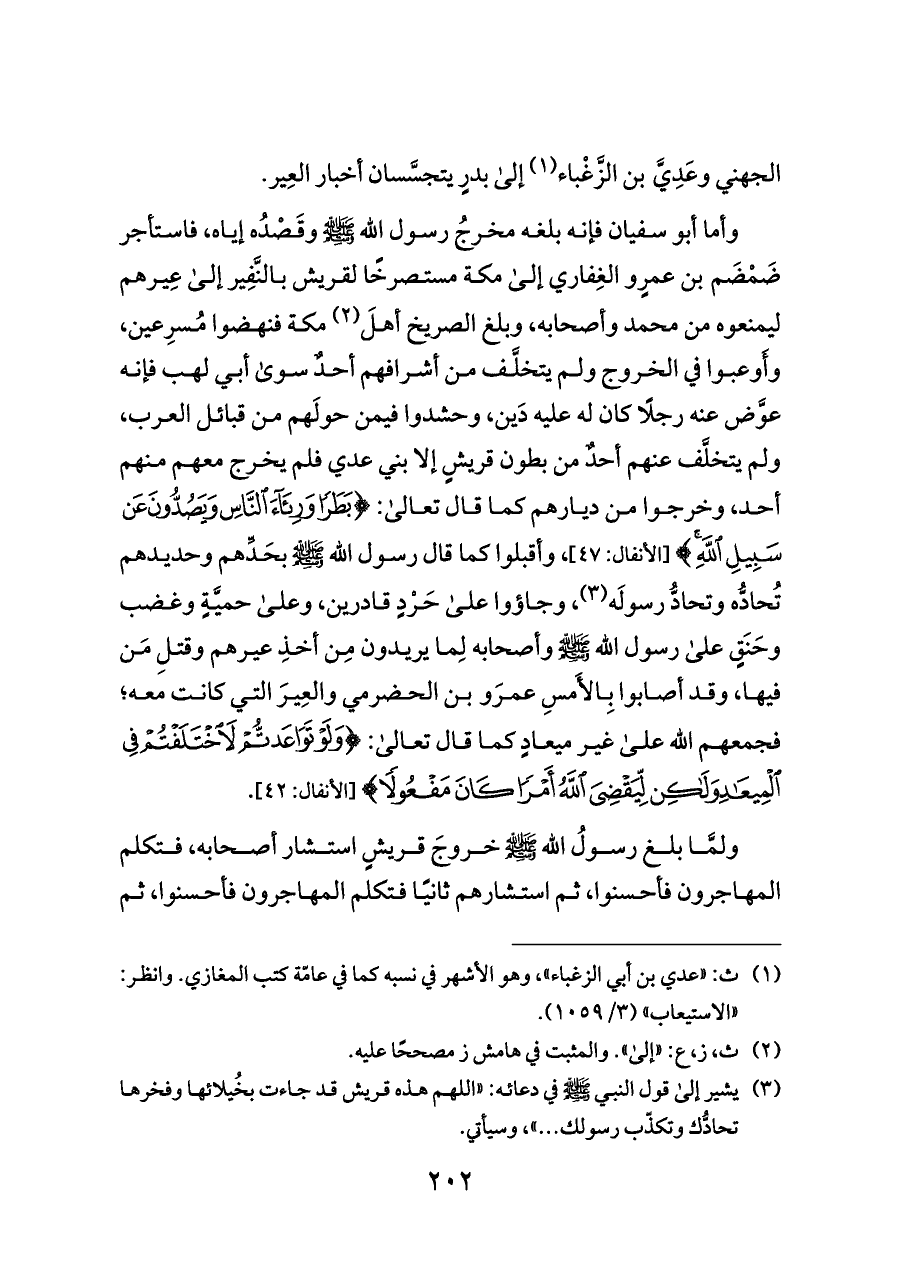 الجهني وعَدِيَّ بن الزَّغْباء(١) إلىٰ بدرٍ يتجسَّسان أخبار العِير.
وأما أبو سفيان فإنه بلغه مخرجُ رسول الله ﷺ وقَصْدُه إياه، فاستأجر
ضَمْضَم بن عمرٍو الغِفاري إلىٰ مكة مستصرخًا لقريش بالنَّفِير إلىٰ عِيرهم
ليمنعوه من محمد وأصحابه، وبلغ الصريخ أهلَ(٢) مكة فنهضوا مُسرِعين،
وأَوعبوا في الخروج ولم يتخلَّف من أشرافهم أحدٌ سوىٰ أبي لهب فإنه
عوَّض عنه رجلًا كان له عليه دَين، وحشدوا فيمن حولَهم من قبائل العرب،
ولم يتخلَّف عنهم أحدٌ من بطون قريشٍ إلا بني عدي فلم يخرج معهم منهم
أحد، وخرجوا من ديارهم كما قال تعالىٰ: ﴿بَطَرٗا وَرِئَآءَ ٱلنَّاسِ وَيَصُدُّونَ عَن
سَبِيلِ ٱللَّهِۚ﴾ [الأنفال: ٤٧]، وأقبلوا كما قال رسول الله ﷺ بحَدِّهم وحديدهم
تُحادُّه وتحادُّ رسولَه(٣)، وجاؤوا علىٰ حَرْدٍ قادرين، وعلىٰ حميَّةٍ وغضب
وحَنَقٍ علىٰ رسول الله ﷺ وأصحابه لِما يريدون مِن أخذِ عيرهم وقتلِ مَن
فيها، وقد أصابوا بِالأَمسِ عمرَو بن الحضرمي والعِيرَ التي كانت معه؛
فجمعهم الله علىٰ غير ميعادٍ كما قال تعالىٰ: ﴿وَلَوۡ تَوَاعَدتُّمۡ لَٱخۡتَلَفۡتُمۡ فِي
ٱلۡمِيعَٰدِ وَلَٰكِن لِّيَقۡضِيَ ٱللَّهُ أَمۡرٗا كَانَ مَفۡعُولٗا﴾ [الأنفال: ٤٢].
ولمَّا بلغ رسولُ الله ﷺ خروجَ قريشٍ استشار أصحابه، فتكلم
المهاجرون فأحسنوا، ثم استشارهم ثانيًا فتكلم المهاجرون فأحسنوا، ثم
(١) ث: «عدي بن أبي الزغباء»، وهو الأشهر في نسبه كما في عامّة كتب المغازي. وانظر:
«الاستيعاب» (٣/ ١٠٥٩).
(٢) ث، ز، ع: «إلىٰ». والمثبت في هامش ز مصححًا عليه.
(٣) يشير إلىٰ قول النبي ﷺ في دعائه: «اللهم هذه قريش قد جاءت بخُيلائها وفخرها
تحادُّك وتكذّب رسولك...»، وسيأتي.
٢٠٢